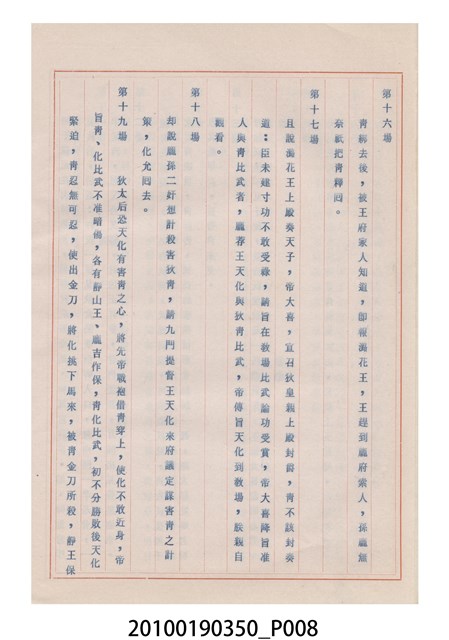 第十六場
青擄去後，被王府家人知道，卽報潞花王，王趕到龐府索人，孫龐無
奈祇把青釋囘。
第十七場
且說潞花王上殿奏天子，帝大喜，宣召狄皇親上殿封爵，青不該封奏
道：臣未建寸功不敢受祿，請旨在敎場比武論功受賞，帝大喜降旨准
人與青比武者，龐荐王天化與狄青比武，帝傳旨天化到敎場，朕親自
觀看。
第十八場
却說龐孫二奸想計殺害狄青，請九門提督王天化來府議定謀害青之計
策，化允囘去。
第十九場　狄太后恐天化有害青之心，將先帝戰袍借青穿上，使化不敢近身，帝
旨青、化比武不准暗傷，各有靜山王、龐吉作保，青化比武，初不分勝敗後天化
緊迫，青忍無可忍，使出金刀，將化挑下馬來，被青金刀所殺，靜王保
20100190350_P008